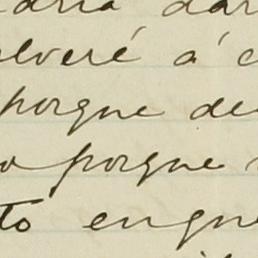 aria dar
olveré á c
porque de
o porque
to en que